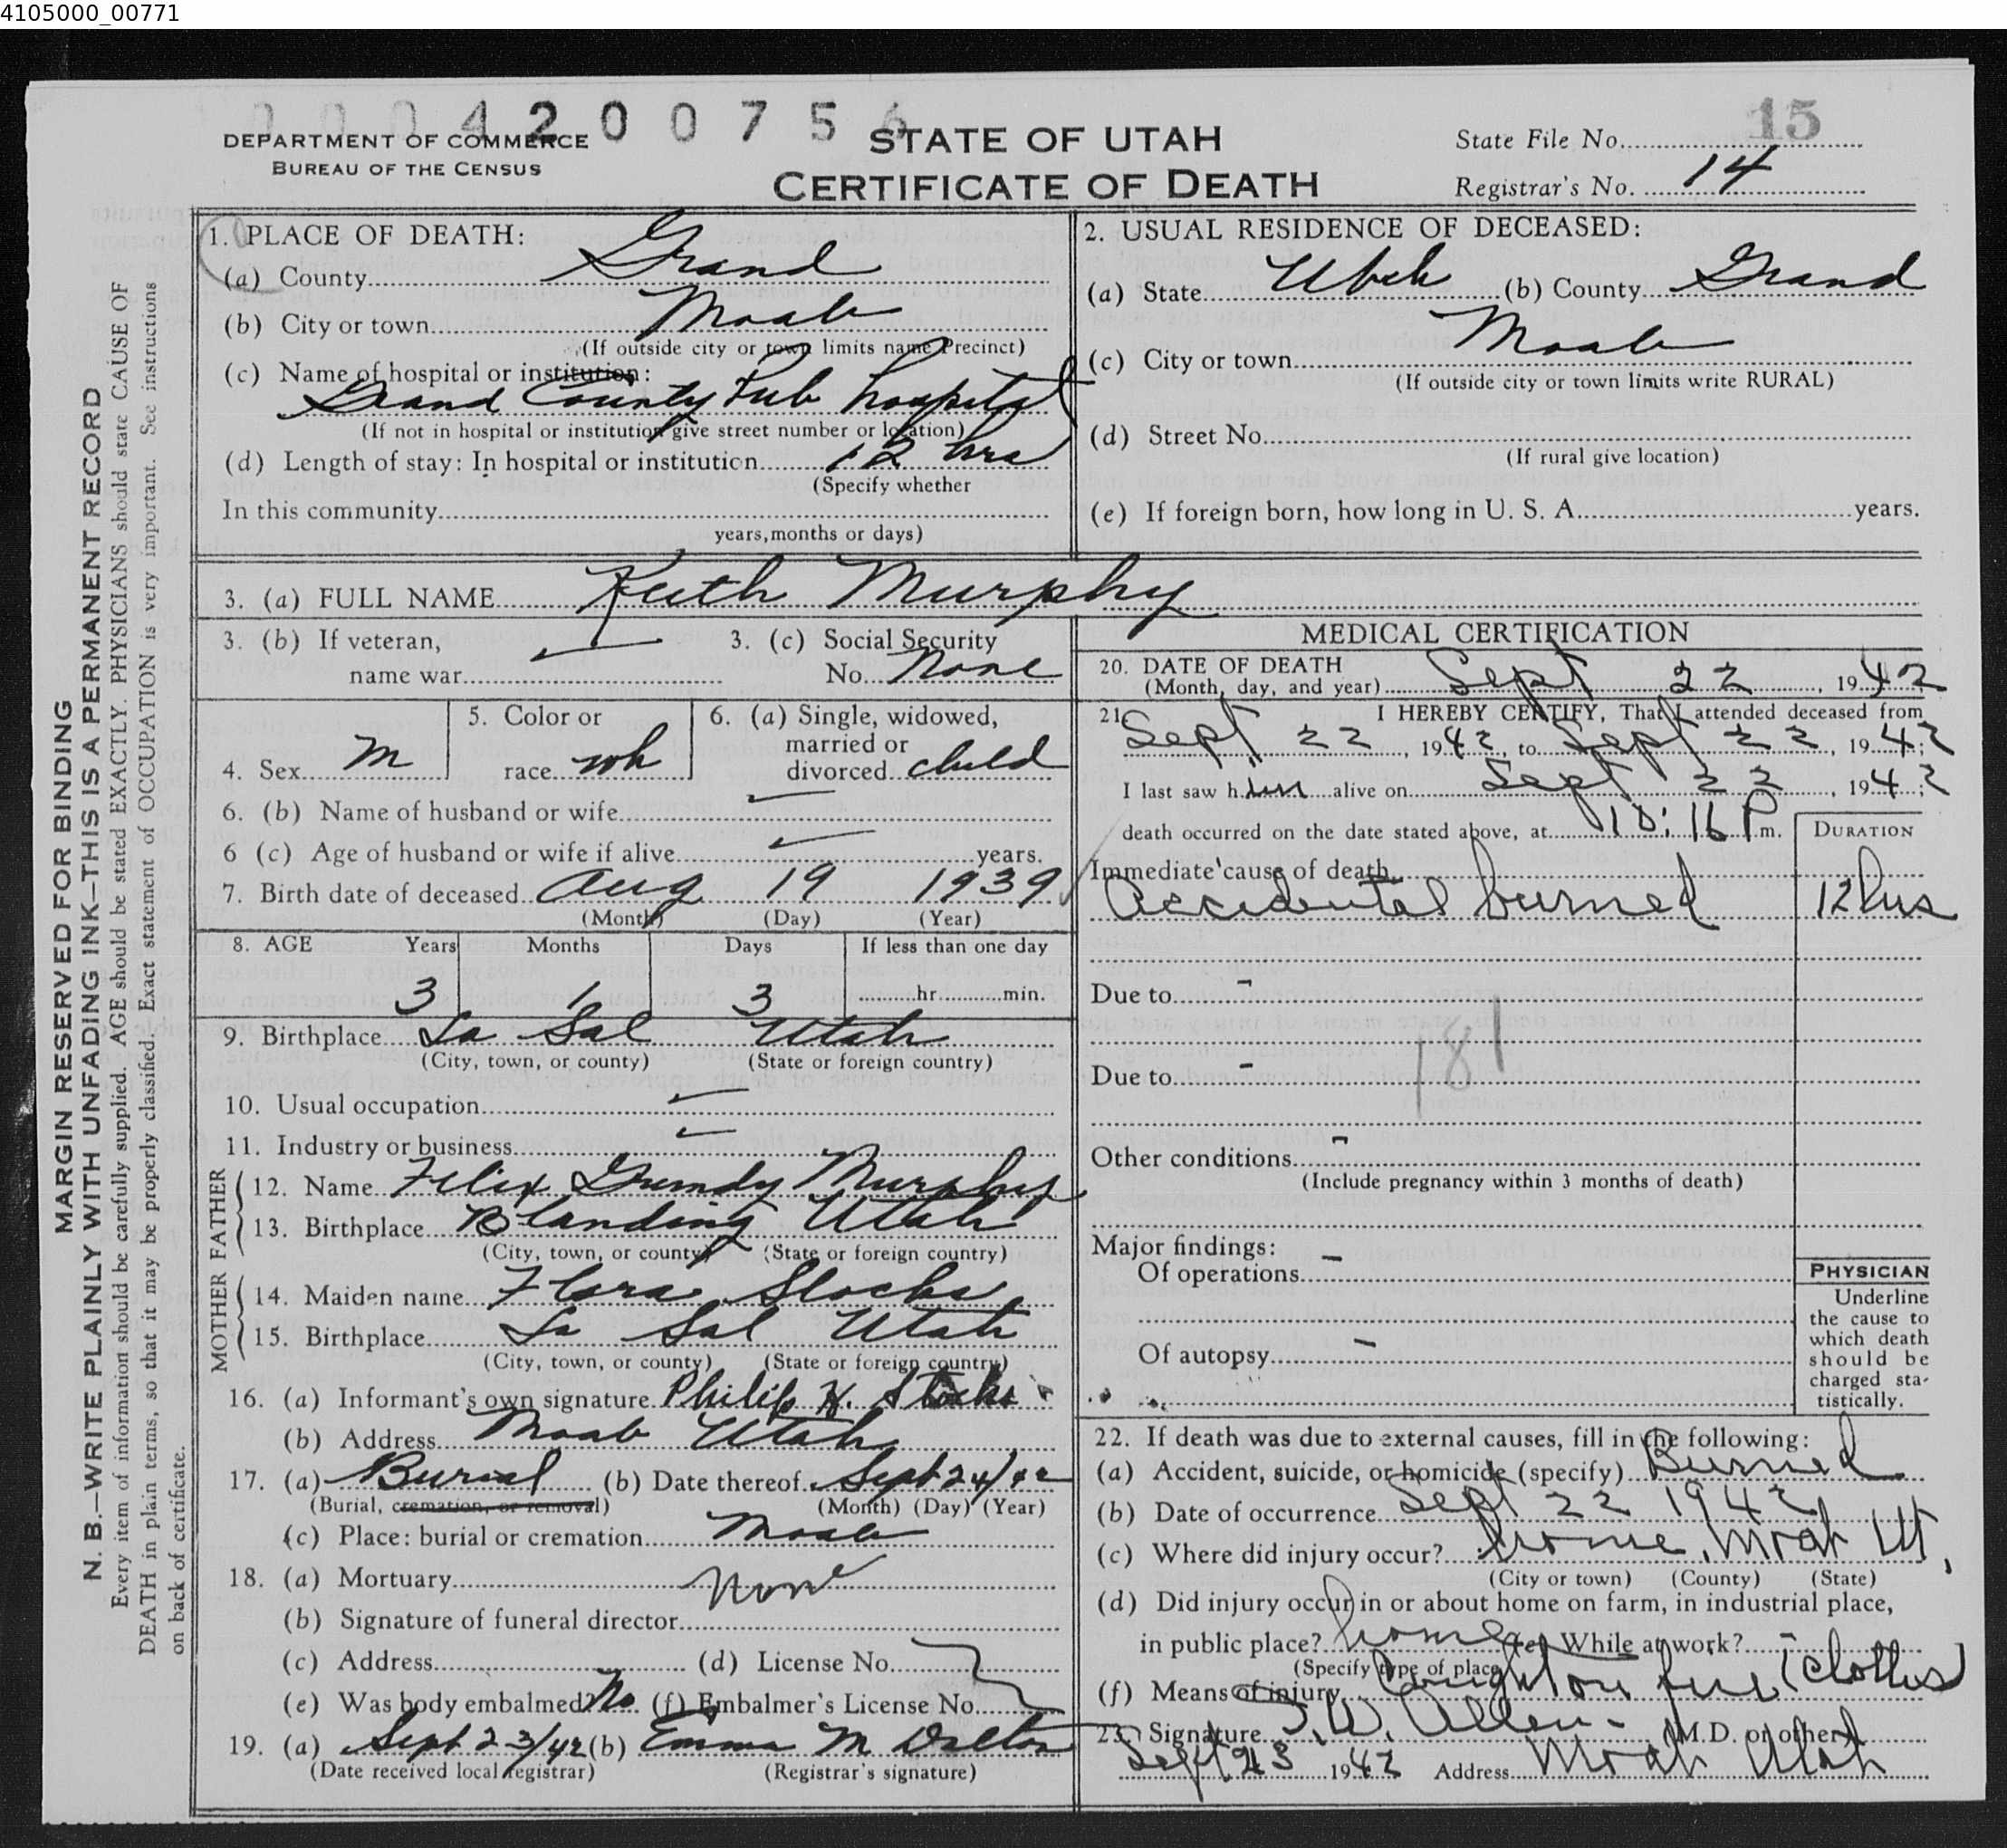 4105000_00771
0 0 0 4 2 0 0 7 5 6
15
DEPARTMENT OF COMMERCE
BUREAU OF THE CENSUS
STATE OF UTAH
CERTIFICATE OF DEATH
State File No.
Registrar's No. 14
MARGIN RESERVED FOR BINDING
N. B.—WRITE PLAINLY WITH UNFADING INK—THIS IS A PERMANENT RECORD
Every item of information should be carefully supplied. AGE should be stated EXACTLY. PHYSICIANS should state CAUSE OF
DEATH in plain terms, so that it may be properly classified. Exact statement of OCCUPATION is very important. See instructions
on back of certificate.
1. PLACE OF DEATH:
(a) County Grand
(b) City or town Moab
(If outside city or town limits name Precinct)
(c) Name of hospital or institution:
Grand County Pub hospital
(If not in hospital or institution give street number or location)
(d) Length of stay: In hospital or institution 12 hrs
(Specify whether
In this community
years, months or days)
2. USUAL RESIDENCE OF DECEASED:
(a) State Utah (b) County Grand
(c) City or town Moab
(If outside city or town limits write RURAL)
(d) Street No.
(If rural give location)
(e) If foreign born, how long in U. S. A. years.
3. (a) FULL NAME Keith Murphy
3. (b) If veteran,
name war
3. (c) Social Security
No. None
4. Sex M
5. Color or
race wh
6. (a) Single, widowed,
married or
divorced child
6. (b) Name of husband or wife
6 (c) Age of husband or wife if alive years.
7. Birth date of deceased Aug 19 1939
(Month) (Day) (Year)
8. AGE Years Months Days If less than one day
3 1 3 hr. min.
9. Birthplace La Sal Utah
(City, town, or county) (State or foreign country)
10. Usual occupation
11. Industry or business
FATHER
12. Name Felix Grundy Murphy
13. Birthplace Blanding Utah
(City, town, or county) (State or foreign country)
MOTHER
14. Maiden name Flora Stocks
15. Birthplace La Sal Utah
(City, town, or county) (State or foreign country)
16. (a) Informant's own signature Philip H. Stocks
(b) Address Moab Utah
17. (a) Burial (b) Date thereof Sept 24/42
(Burial, cremation, or removal) (Month) (Day) (Year)
(c) Place: burial or cremation Moab
18. (a) Mortuary None
(b) Signature of funeral director
(c) Address (d) License No.
(e) Was body embalmed? No (f) Embalmer's License No.
19. (a) Sept 23/42 (b) Emma M Dalton
(Date received local registrar) (Registrar's signature)
MEDICAL CERTIFICATION
20. DATE OF DEATH
(Month, day, and year) Sept 22, 1942
21. I HEREBY CERTIFY, That I attended deceased from
Sept 22, 1942, to Sept 22, 1942;
I last saw him alive on Sept 22, 1942;
death occurred on the date stated above, at 10:16 P m.
DURATION
Immediate cause of death
Accidental burned 12 hrs
Due to -
181
Due to -
Other conditions -
(Include pregnancy within 3 months of death)
Major findings:
Of operations -
Of autopsy -
PHYSICIAN
Underline
the cause to
which death
should be
charged sta-
tistically.
22. If death was due to external causes, fill in the following:
(a) Accident, suicide, or homicide (specify) Burned
(b) Date of occurrence Sept 22 1942
(c) Where did injury occur? home, Moab Ut,
(City or town) (County) (State)
(d) Did injury occur in or about home on farm, in industrial place,
in public place? home (e) While at work? -
(Specify type of place)
(f) Means of injury Caught on fire (clothes)
23. Signature I. W. Allen (M.D. or other)
Sept 23 1942 Address Moab Utah